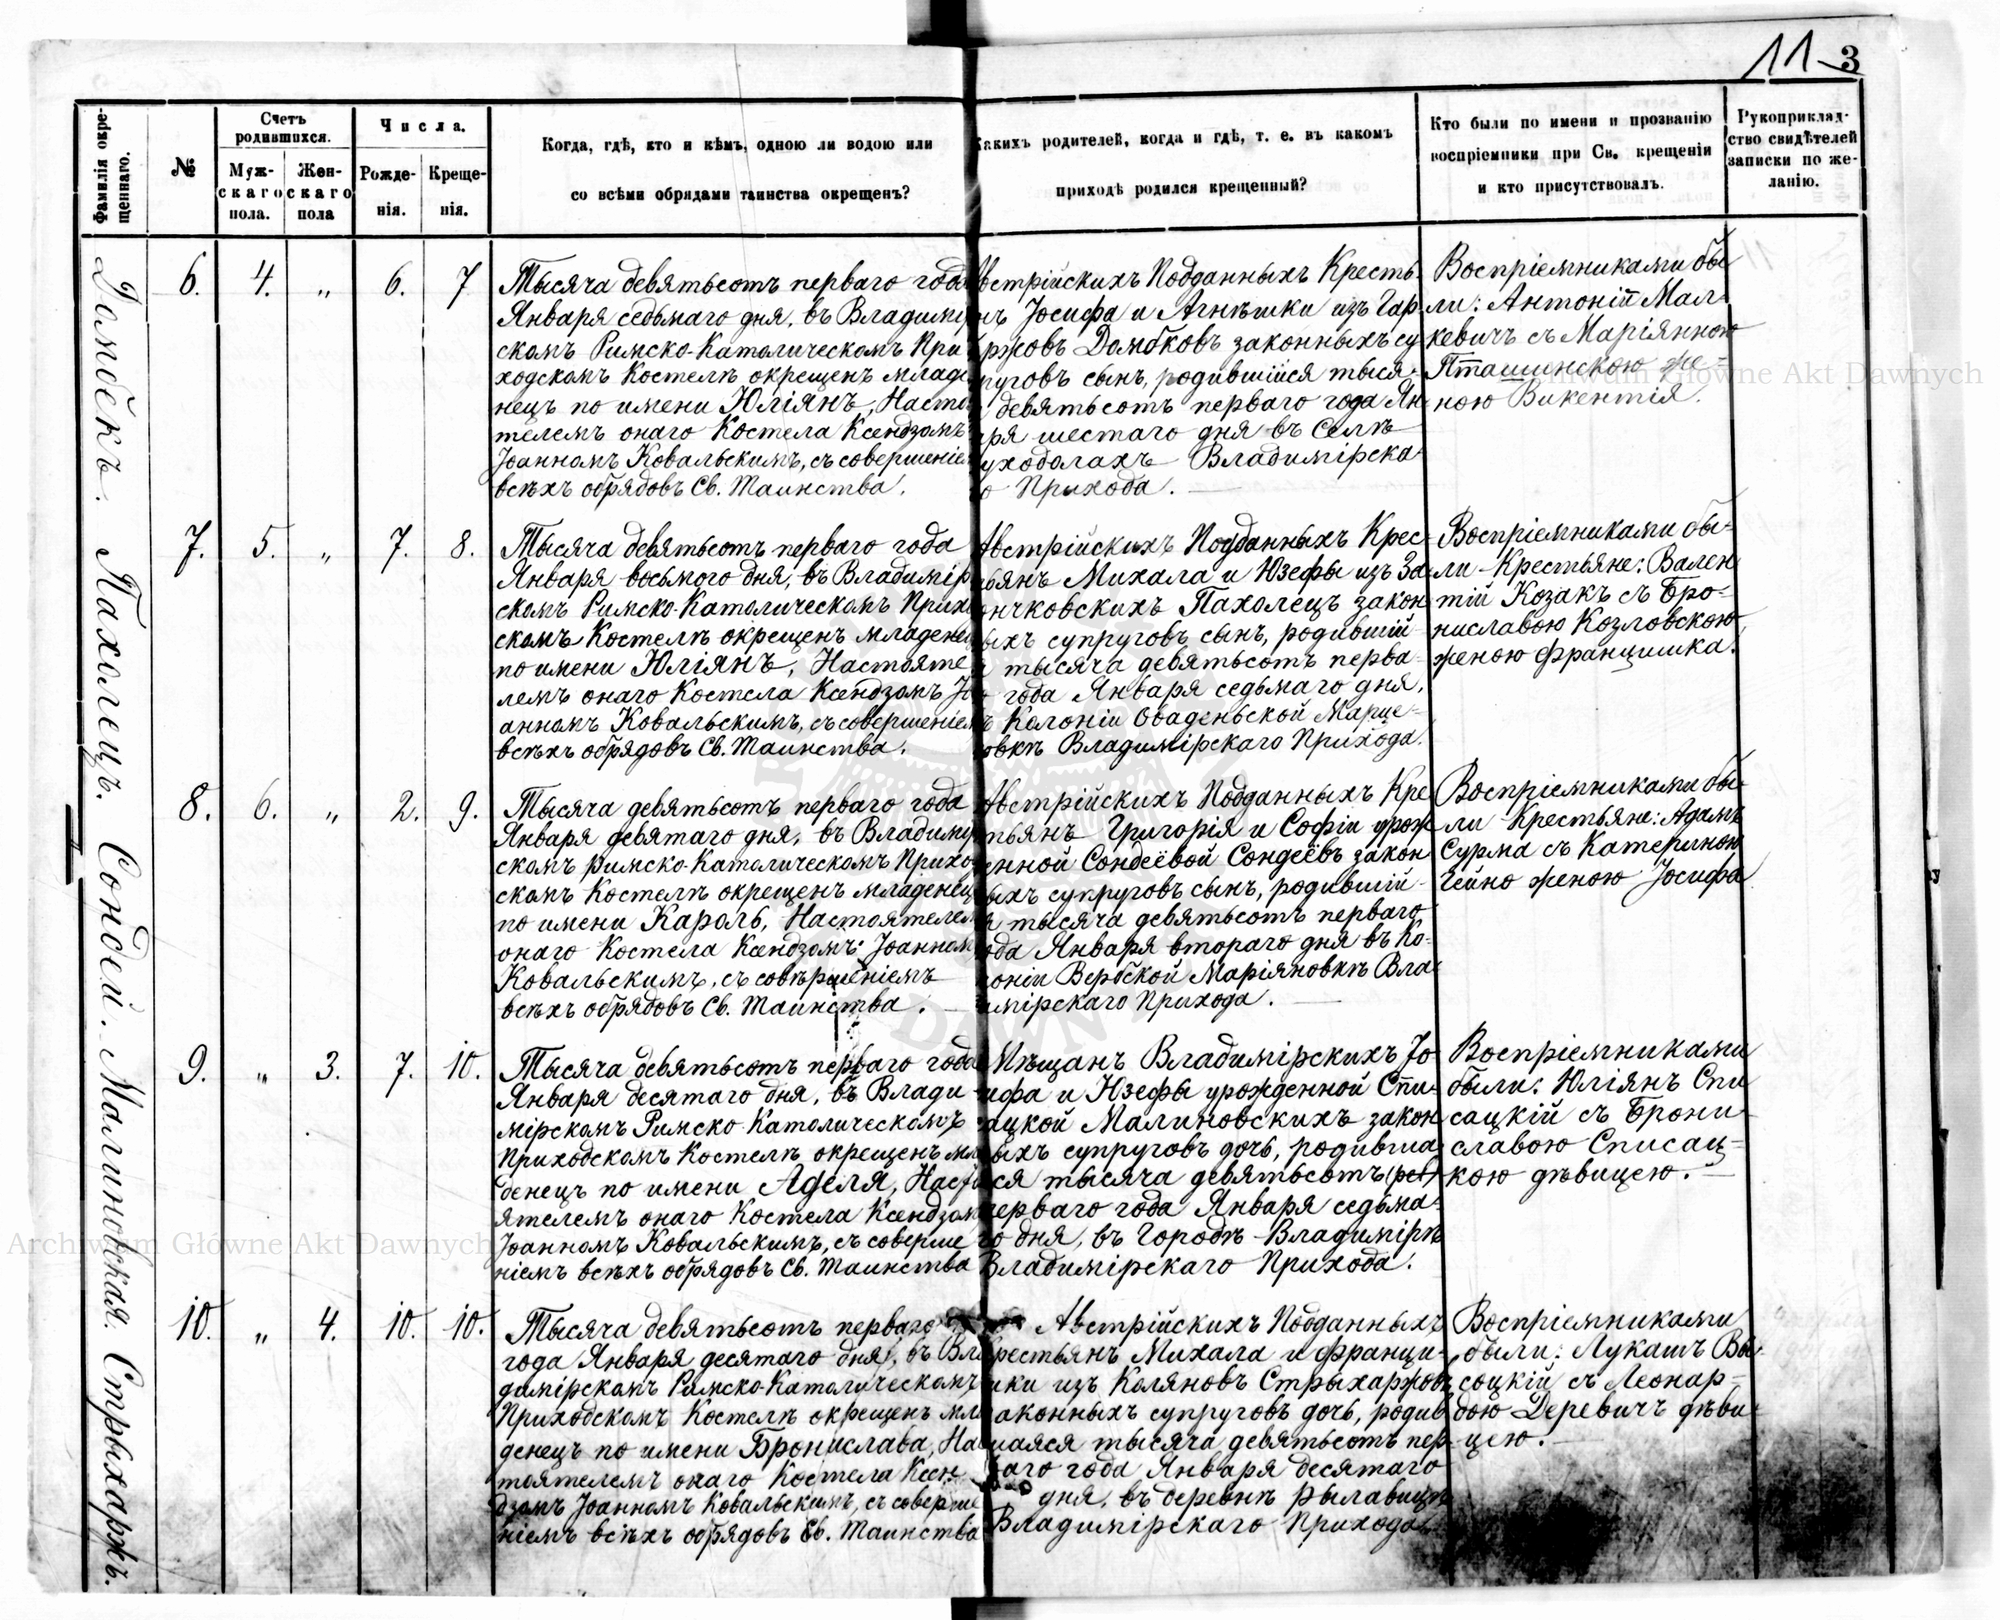 11
3
Фамилія окрещеннаго.
№
Счетъ родившихся.
Мужскаго пола.
Женскаго пола
Числа.
Рожденія.
Крещенія.
Когда, гдѣ, кто и кѣмъ, одною ли водою или
со всѣми обрядами таинства окрещенъ?
Какихъ родителей, когда и гдѣ, т. е. въ какомъ
приходѣ родился крещенный?
Кто были по имени и прозванію
воспріемники при Св. крещеніи
и кто присутствовалъ.
Рукоприклад-
ство свидѣтелей
записки по же-
ланію.
Домбекъ.
6. 4. „ 6. 7
Тысяча девятьсотъ перваго года
Января седьмаго дня, въ Владимір
скомъ Римско-Католическомъ При
ходскомъ Костелѣ окрещенъ младе
нецъ по имени Юліянъ, Насто
телемъ онаго Костела Ксендзомъ
Іоанномъ Ковальскимъ, съ совершеніе
всѣхъ обрядовъ Св. Таинства.
встрійскихъ Подданныхъ Кресть-
нъ Іосифа и Агнѣшки изъ Гар-
ржовъ Домбковъ законныхъ су
руговъ сынъ, родившійся тыся-
девятьсотъ перваго года Ян-
аря шестаго дня въ Селѣ
уходолахъ Владимірска-
о Прихода.
Воспріемниками бы
ли: Антоній Мал-
кевичъ съ Маріянною
Пташинскою же-
ною Викентія.
Пахолецъ.
7. 5. „ 7. 8.
Тысяча девятьсотъ перваго года
Января восьмого дня, въ Владимір
скомъ Римско-Католическомъ Прихо
скомъ Костелѣ окрещенъ младене
по имени Юліянъ, Настояте
лемъ онаго Костела Ксендзомъ Іо
анномъ Ковальскимъ, съ совершеніем
всѣхъ обрядовъ Св. Таинства.
Австрійскихъ Подданныхъ Крес-
ьянъ Михала и Юзефы изъ За-
ончковскихъ Пахолецъ закон
ыхъ супруговъ сынъ, родившій-
я тысяча девятьсотъ перва-
о года Января седьмаго дня,
ъ Колоніи Оваденьской Марце-
овкѣ Владимірскаго Прихода.
Воспріемниками бы-
ли Крестьяне: Вален
тій Козакъ съ Бро-
ниславою Козловскою
женою Францишка.
Сондей.
8. 6. „ 2. 9.
Тысяча девятьсотъ перваго года
Января девятаго дня, въ Владимір
скомъ Римско-Католическомъ Прихо
скомъ Костелѣ окрещенъ младенец
по имени Кароль, Настоятелем
онаго Костела Ксендзомъ Іоанном
Ковальскимъ, съ совѣршеніемъ
всѣхъ обрядовъ Св. Таинства.
Австрійскихъ Подданныхъ Кре
тьянъ Григорія и Софіи урож
енной Сондеёвой Сондеёвъ закон
ыхъ супруговъ сынъ, родившій-
я тысяча девятьсотъ перваго
ода Января втораго дня въ Ко-
оніи Вербской Маріяновкѣ Вла-
имірскаго Прихода.
Воспріемниками бы-
ли Крестьяне: Адамъ
Сурма съ Катериною
Гейно женою Іосифа
Малиновская.
9. „ 3. 7. 10.
Тысяча девятьсотъ перваго года
Января десятаго дня, въ Влади
мірскомъ Римско-Католическомъ
Приходскомъ Костелѣ окрещенъ мла
денецъ по имени Аделя, Насто
ятелемъ онаго Костела Ксендзом
Іоанномъ Ковальскимъ, съ соверше
ніемъ всѣхъ обрядовъ Св. Таинства
Мѣщанъ Владимірскихъ Іо
ифа и Юзефы урожденной Спи-
ацкой Малиновскихъ закон
ыхъ супруговъ дочь, родивша
ся тысяча девятьсотъ
перваго года Января седьма-
го дня, въ Городѣ Владимірѣ
Владимірскаго Прихода.
Воспріемниками
были: Юліянъ Спи
сацкій съ Брони-
славою Списац-
кою дѣвицею.
Стрыхаржъ.
10. „ 4. 10. 10.
Тысяча девятьсотъ перваго
года Января десятаго дня, въ Вла
димірскомъ Римско-Католическомъ
Приходскомъ Костелѣ окрещенъ мла
денецъ по имени Бронислава, На
тоятелемъ онаго Костела Ксен
дзомъ Іоанномъ Ковальскимъ, съ соверше
ніемъ всѣхъ обрядовъ Св. Таинства
Австрійскихъ Подданныхъ
рестьянъ Михала и Франци-
шки изъ Коляновъ Стрыхаржовъ
аконныхъ супруговъ дочь, родив
шаяся тысяча девятьсотъ пер-
ваго года Января десятаго
дня, въ деревнѣ Рылавицѣ
Владимірскаго Прихода
Воспріемниками
были: Лукашъ Вы-
соцкій съ Леонар-
дою Деревичъ дѣви-
цею.
Archiwum Główne Akt Dawnych
Archiwum Główne Akt Dawnych